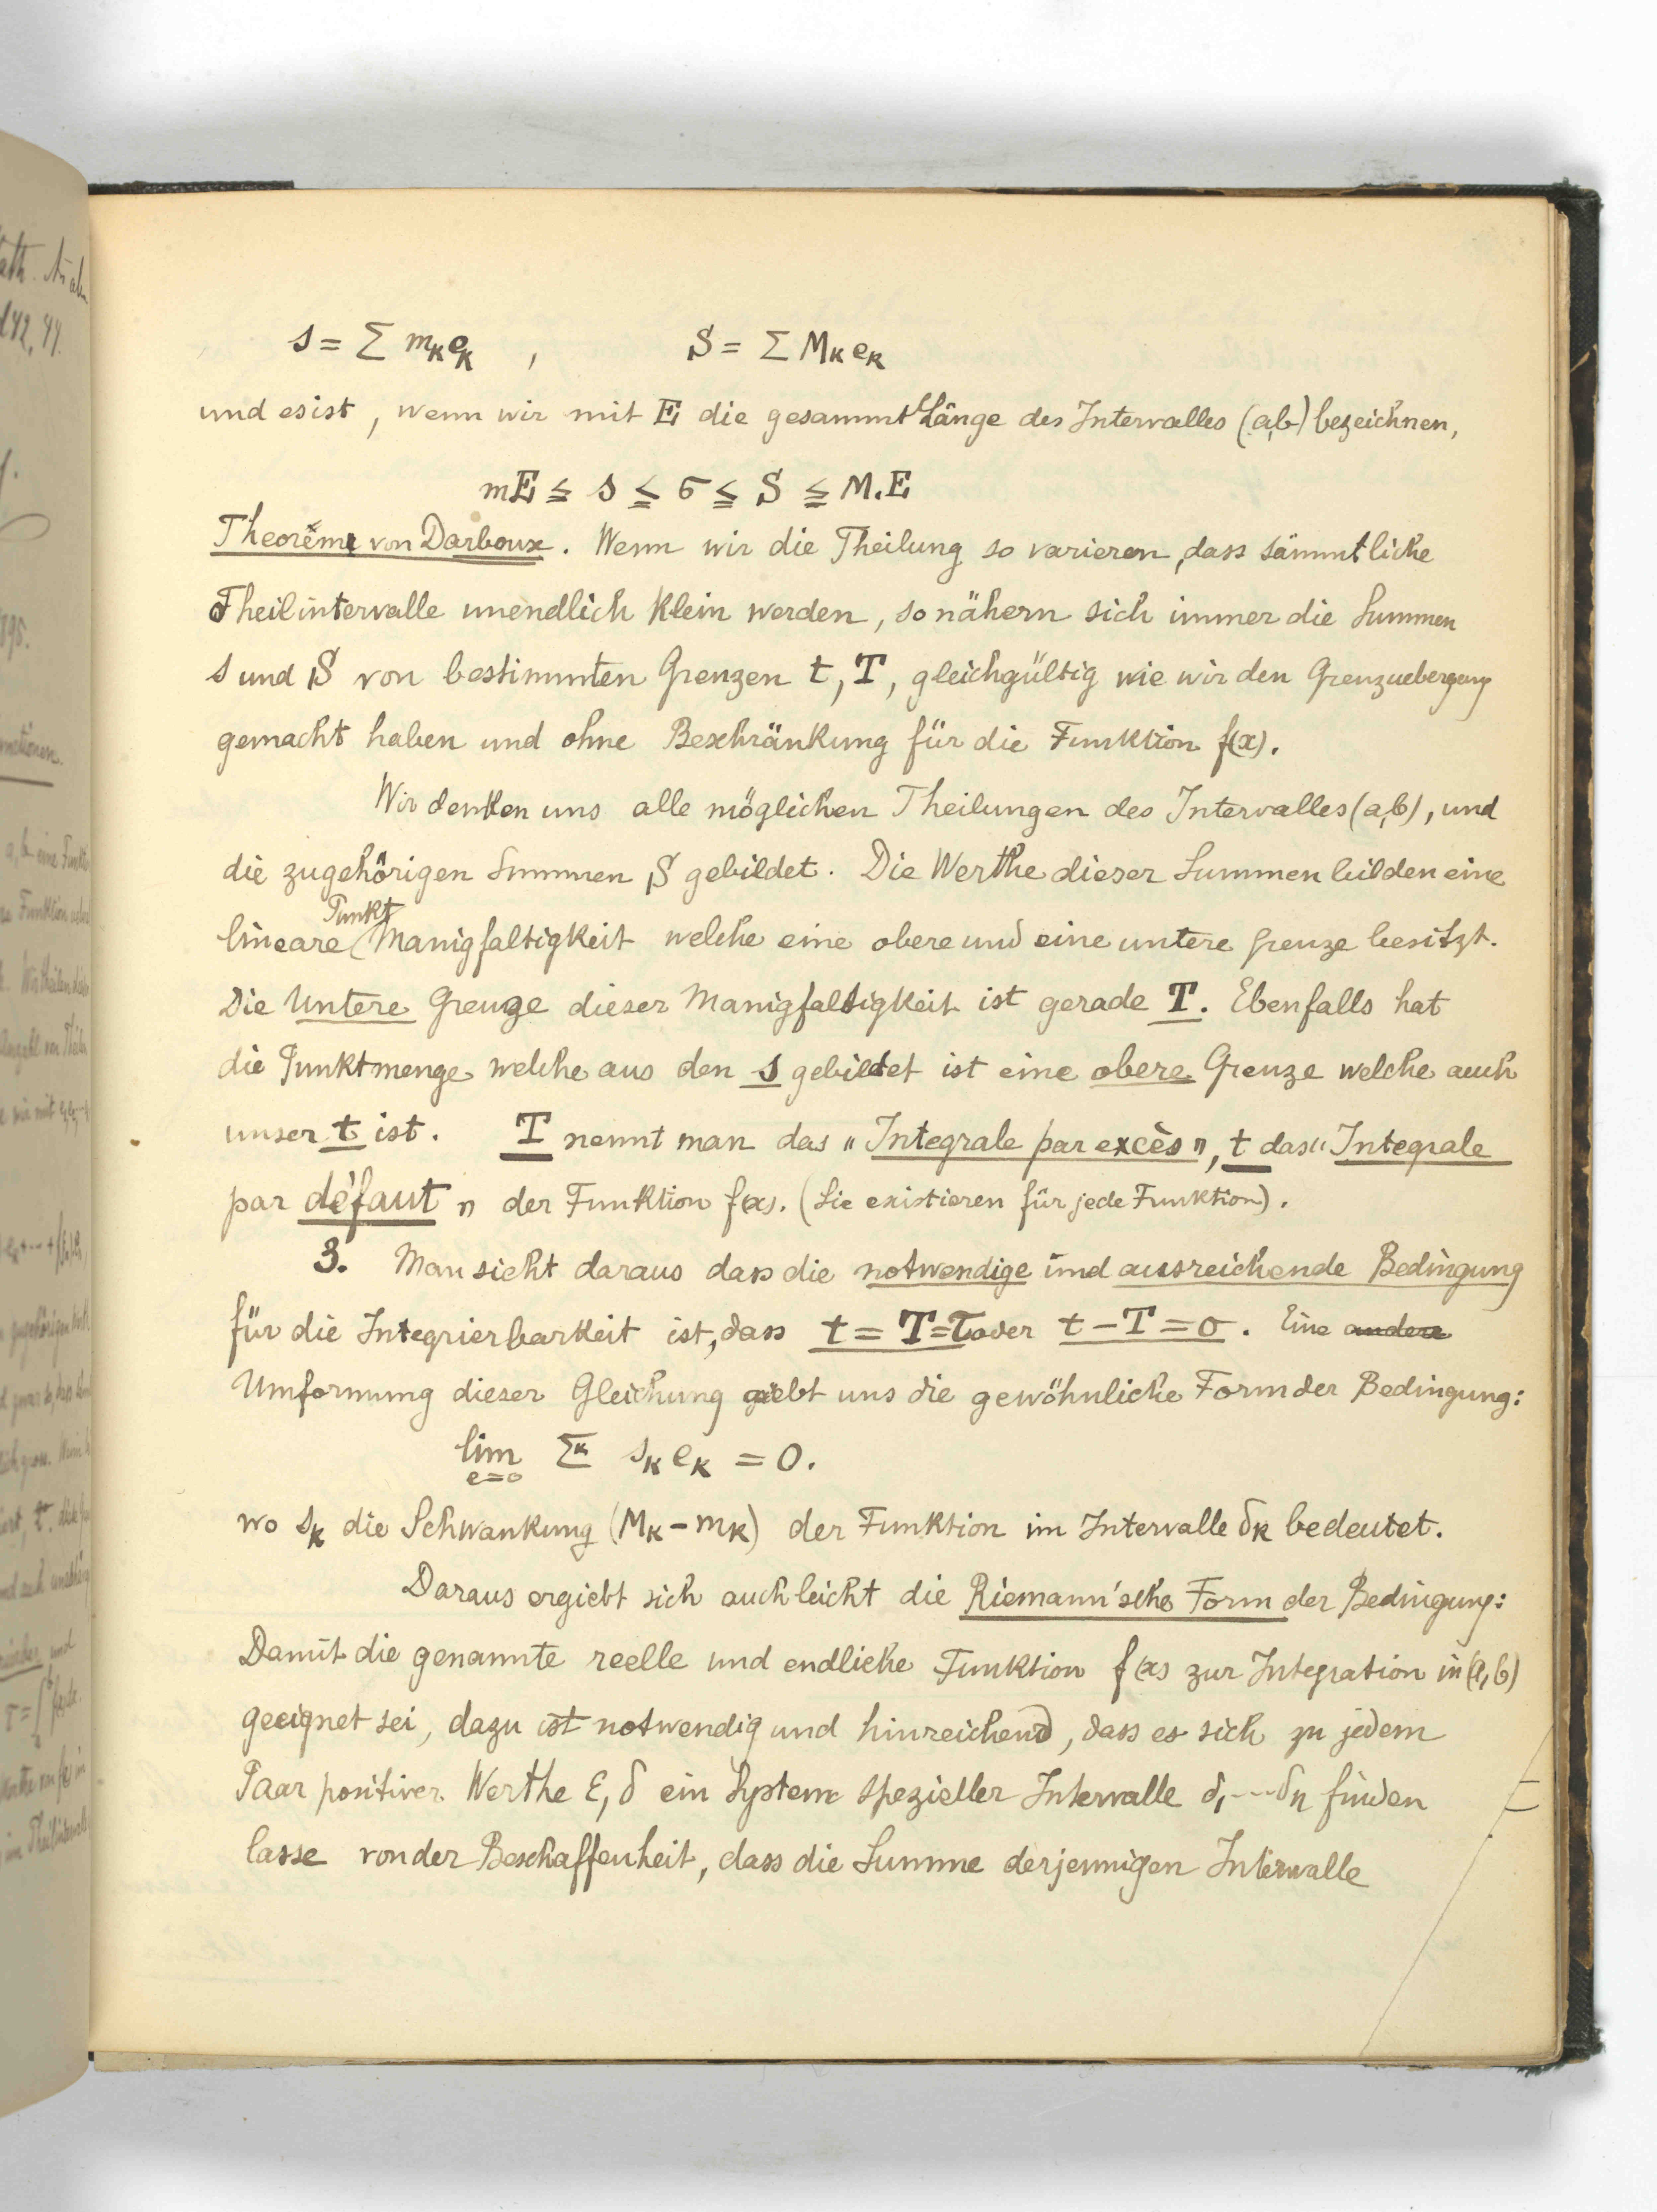 s = Σ mₖeₖ , S = Σ Mₖeₖ
und es ist, wenn wir mit E die gesammt Länge des Intervalles (a,b) bezeichnen,
mE ≦ s ≦ σ ≦ S ≦ M.E
Theorème von Darboux. Wenn wir die Theilung so varieren, dass sämmtliche
Theilintervalle unendlich klein werden, so nähern sich immer die Summen
s und S von bestimmten Grenzen t, T, gleichgültig wie wir den Grenzuebergang
gemacht haben und ohne Beschränkung für die Funktion f(x).
Wir denken uns alle möglichen Theilungen des Intervalles (a,b), und
die zugehörigen Summen S gebildet. Die Werthe dieser Summen bilden eine
lineare Punkt Manigfaltigkeit welche eine obere und eine untere Grenze besitzt.
Die Untere Grenze dieser Manigfaltigkeit ist gerade T. Ebenfalls hat
die Punktmenge welche aus den s gebildet ist eine obere Grenze welche auch
unser t ist. T nennt man das „Integrale par excès", t das „Integrale
par défaut" der Funktion f(x). (Sie existieren für jede Funktion).
3. Man sieht daraus dass die notwendige und ausreichende Bedingung
für die Integrierbarkeit ist, dass t = T = τ oder t − T = 0. Eine andere
Umformung dieser Gleichung giebt uns die gewöhnliche Form der Bedingung:
lim e=0 Σᵏ sₖeₖ = 0.
wo sₖ die Schwankung (Mₖ − mₖ) der Funktion im Intervalle δₖ bedeutet.
Daraus ergiebt sich auch leicht die Riemann'sche Form der Bedingung:
Damit die genannte reelle und endliche Funktion f(x) zur Integration in (a,b)
geeignet sei, dazu ist notwendig und hinreichend, dass es sich zu jedem
Paar positiver Werthe ε, δ ein System spezieller Intervalle δ₁ --- δₙ finden
lasse von der Beschaffenheit, dass die Summe derjenigen Intervalle